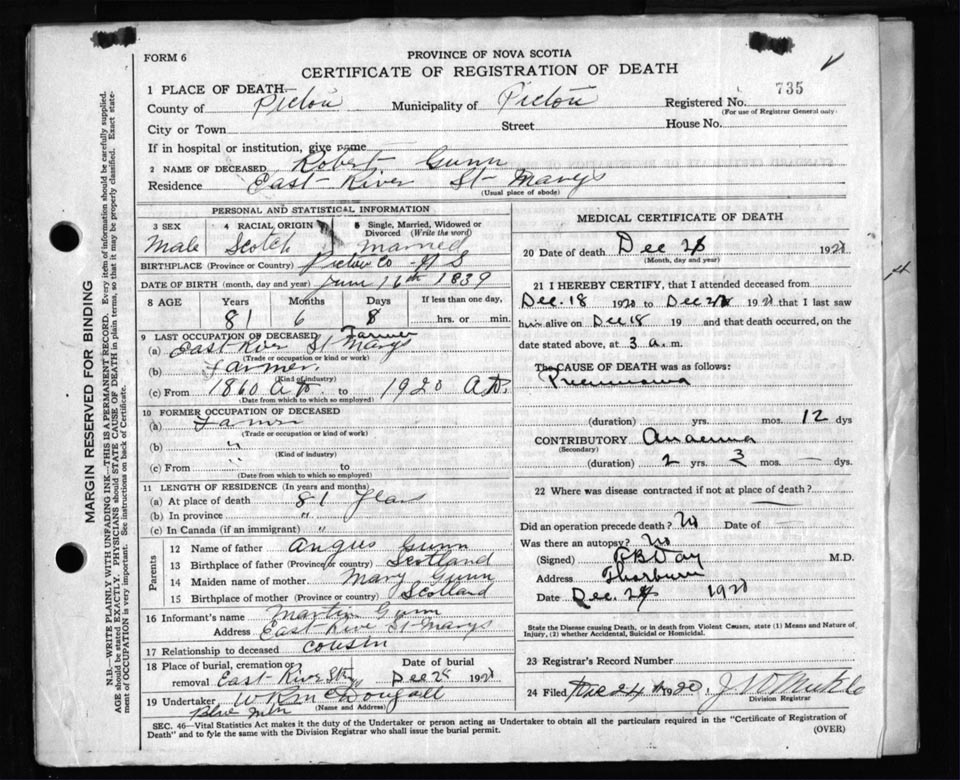 FORM 6
PROVINCE OF NOVA SCOTIA
CERTIFICATE OF REGISTRATION OF DEATH
1 PLACE OF DEATH—
County of Pictou Municipality of Pictou Registered No. 735
(For use of Registrar General only)
City or Town Street House No.
If in hospital or institution, give name
2 NAME OF DECEASED Robert Gunn
Residence East River St Marys
(Usual place of abode)
PERSONAL AND STATISTICAL INFORMATION
3 SEX 4 RACIAL ORIGIN 5 Single, Married, Widowed or Divorced (Write the word)
Male Scotch Married
BIRTHPLACE (Province or Country) Pictou Co N S
DATE OF BIRTH (month, day and year) June 16th 1839
8 AGE Years Months Days If less than one day,
81 6 8 hrs. or min.
9 LAST OCCUPATION OF DECEASED Farmer
(a) East River St Marys
(Trade or occupation or kind or work)
(b) Farmer
(Kind of industry)
(c) From 1860 A.D. to 1920 A.D.
(Date from which to which so employed)
10 FORMER OCCUPATION OF DECEASED
(a) Farmer
(Trade or occupation or kind of work)
(b) "
(Kind of industry)
(c) From " to
(Date from which to which so employed)
11 LENGTH OF RESIDENCE (In years and months)
(a) At place of death 81 Years
(b) In province "
(c) In Canada (if an immigrant) "
Parents
12 Name of father Angus Gunn
13 Birthplace of father (Province or country) Scotland
14 Maiden name of mother Mary Gunn
15 Birthplace of mother (Province or country) Scotland
16 Informant's name Martin Gunn
Address East River St Marys
17 Relationship to deceased cousin
18 Place of burial, cremation or removal East River St Date of burial Dec 192
19 Undertaker McDougall
(Name and Address)
Blue Mtn
MEDICAL CERTIFICATE OF DEATH
20 Date of death Dec 192
(Month, day and year)
21 I HEREBY CERTIFY, that I attended deceased from
Dec. 18 1920 to Dec 19 that I last saw
him alive on Dec 18 19 and that death occurred, on
the date stated above, at 3 a.m.
The CAUSE OF DEATH was as follows:
Pneumonia
(duration) yrs. mos. 12 dys
CONTRIBUTORY Anaemia
(Secondary)
(duration) 2 yrs. 3 mos. — dys.
22 Where was disease contracted if not at place of death?
Did an operation precede death? No Date of
Was there an autopsy? No
(Signed) Day M.D.
Address Thorburn
Date Dec. 192
State the Disease causing Death, or in death from Violent Causes, state (1) Means and Nature of
Injury, (2) whether Accidental, Suicidal or Homicidal.
23 Registrar's Record Number
24 Filed Dec 24 1920
Division Registrar
SEC. 46—Vital Statistics Act makes it the duty of the Undertaker or person acting as Undertaker to obtain all the particulars required in the "Certificate of Registration of
Death" and to fyle the same with the Division Registrar who shall issue the burial permit. (OVER)
MARGIN RESERVED FOR BINDING
N.B.—WRITE PLAINLY WITH UNFADING INK—THIS IS A PERMANENT RECORD. Every item of information should be carefully supplied.
AGE should be stated EXACTLY. PHYSICIANS should STATE CAUSE OF DEATH in plain terms, so that it may be properly classified. Exact state-
ment of OCCUPATION is very important. See instructions on back of Certificate.